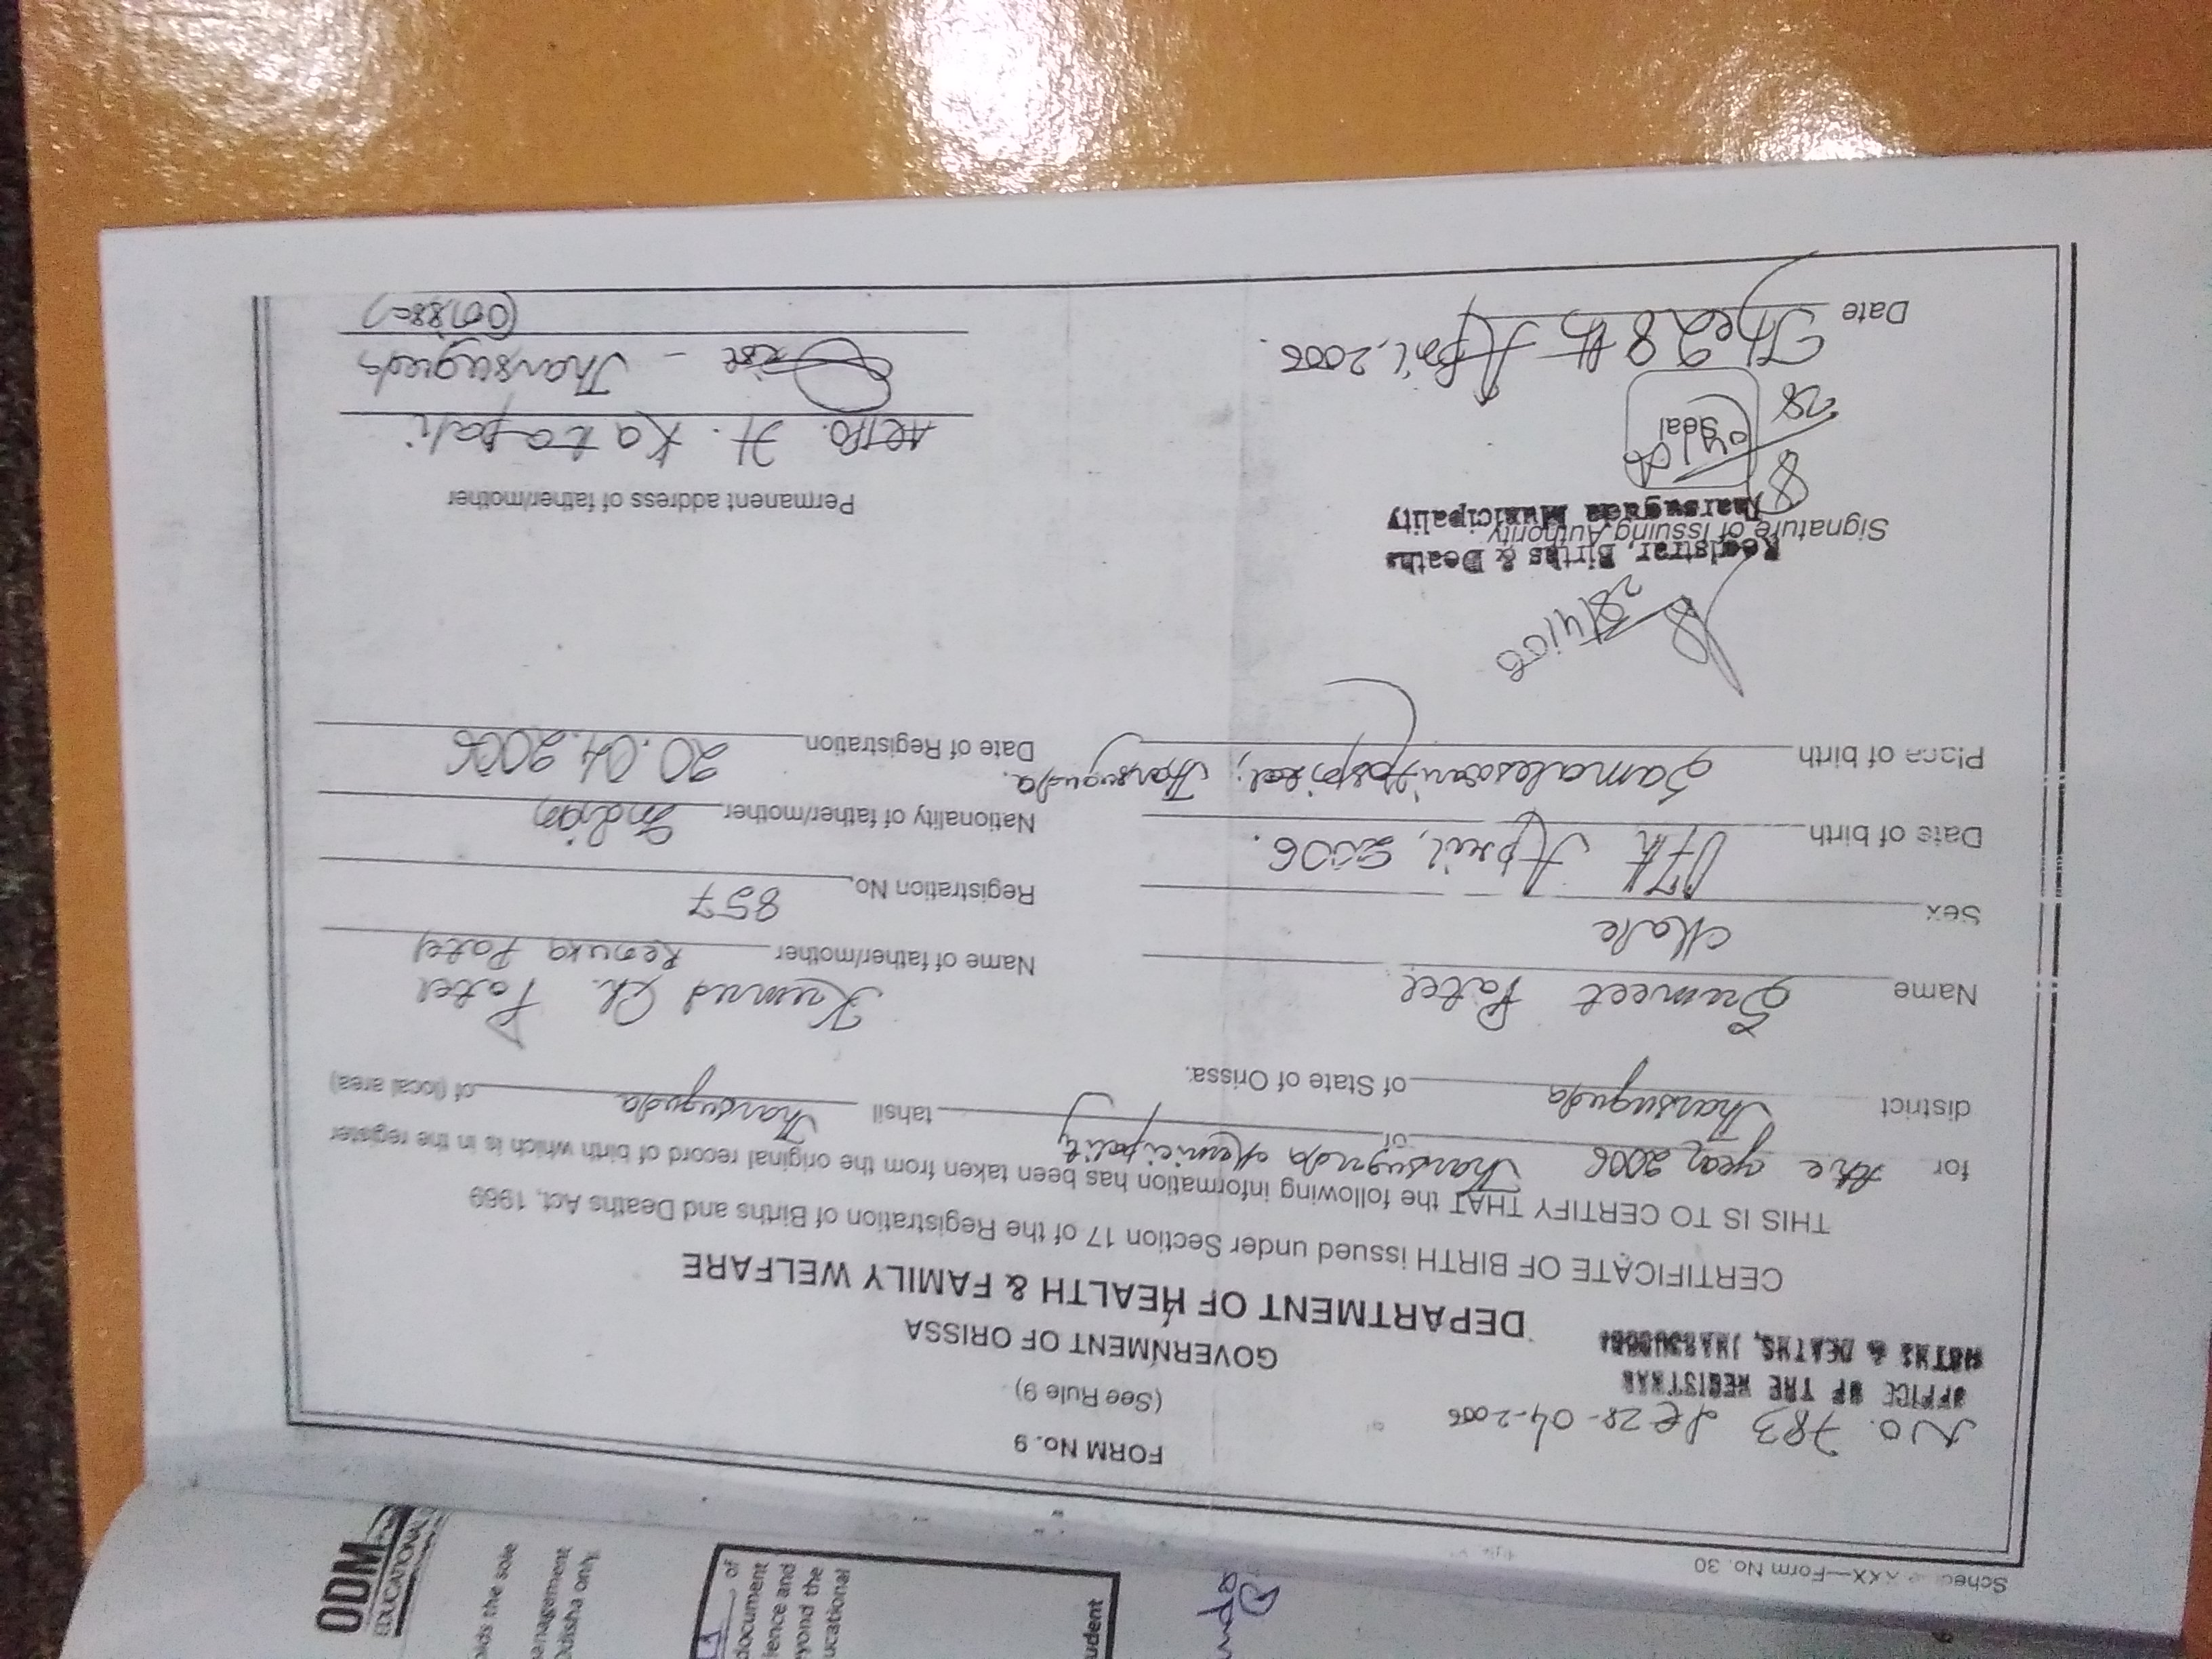 Schedule XXX—Form No. 30
FORM No. 9
(See Rule 9)
No. 783 28-04-2006
OFFICE OF THE REGISTRAR
BIRTHS & DEATHS, JHARSUGUDA
GOVERNMENT OF ORISSA
DEPARTMENT OF HEALTH & FAMILY WELFARE
CERTIFICATE OF BIRTH issued under Section 17 of the Registration of Births and Deaths Act, 1969
THIS IS TO CERTIFY THAT the following information has been taken from the original record of birth which is in the register
for the year 2006 of Jharsuguda Municipality tahsil Jharsuguda of (local area)
district Jharsuguda of State of Orissa.
Name Sumeet Patel
Name of father/mother Kumud Ch. Patel
Renuka Patel
Sex Male
Registration No. 857
Date of birth 17th April, 2006.
Nationality of father/mother Indian
Place of birth Samaleswari Hospital, Jharsuguda.
Date of Registration 20.04.2006
28/4/06
Registrar, Births & Deaths
Signature of Issuing Authority
Jharsuguda Municipality
Permanent address of father/mother
H. Katapali
Dist - Jharsuguda
(Orissa)
Seal
28
Date The 28th April, 2006.
ODM
EDUCATIONAL
of
document
yond the
ucational
udent
the sole
anagement
Odisha only.